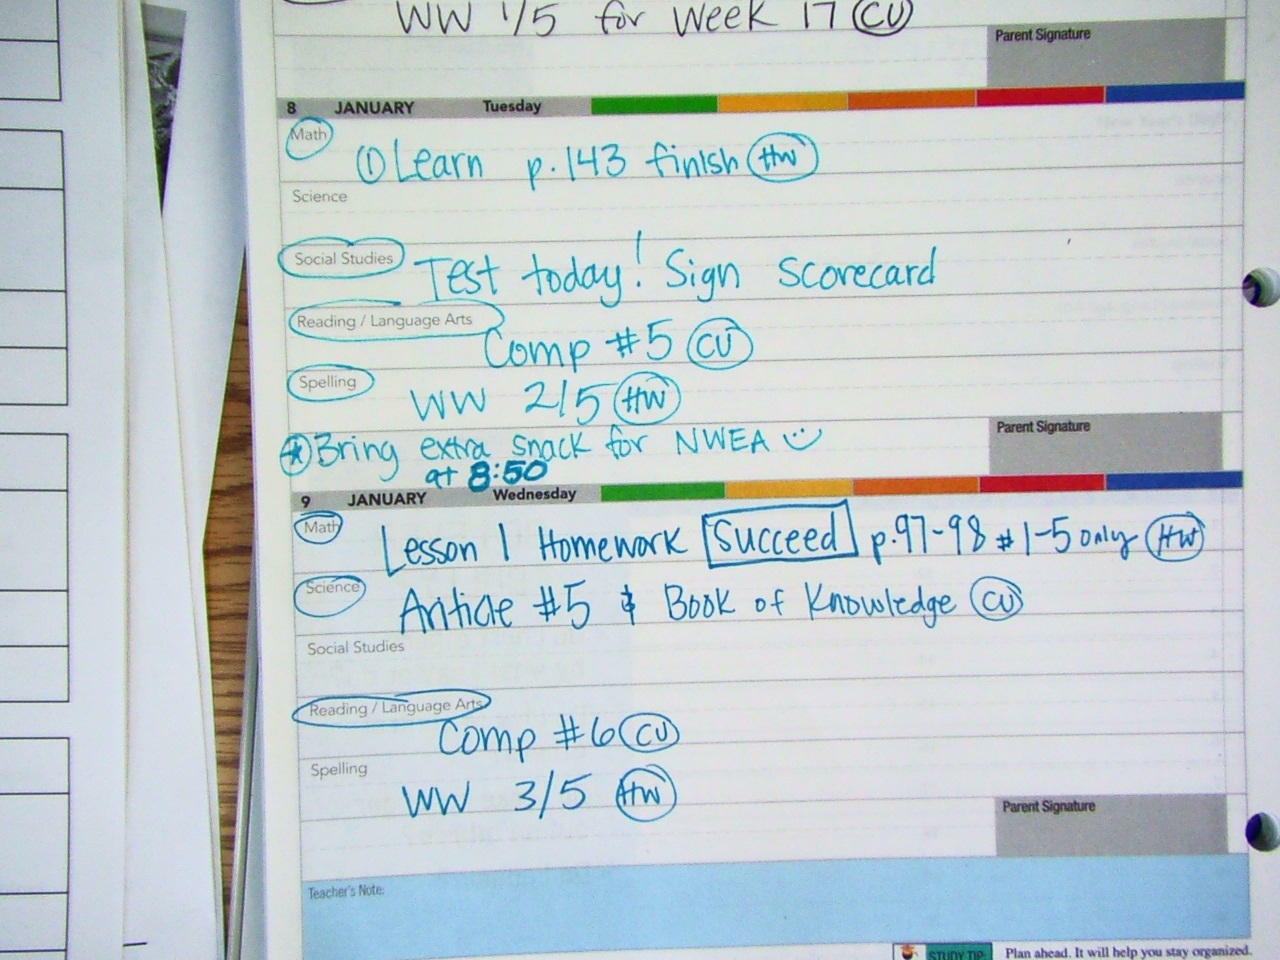 WW 1/5 for Week 17 CU
Parent Signature
8 JANUARY Tuesday
Math
① Learn p. 143 finish HW
Science
Social Studies
Test today! Sign Scorecard
Reading / Language Arts
Comp #5 CU
Spelling
WW 2/5 HW
* Bring extra snack for NWEA
at 8:50
Parent Signature
9 JANUARY Wednesday
Math
Lesson 1 Homework Succeed p. 97-98 #1-5 only HW
Science
Article #5 & Book of Knowledge CU
Social Studies
Reading / Language Arts
Comp #6 CU
Spelling
WW 3/5 HW
Parent Signature
Teacher's Note:
STUDY TIP: Plan ahead. It will help you stay organized.